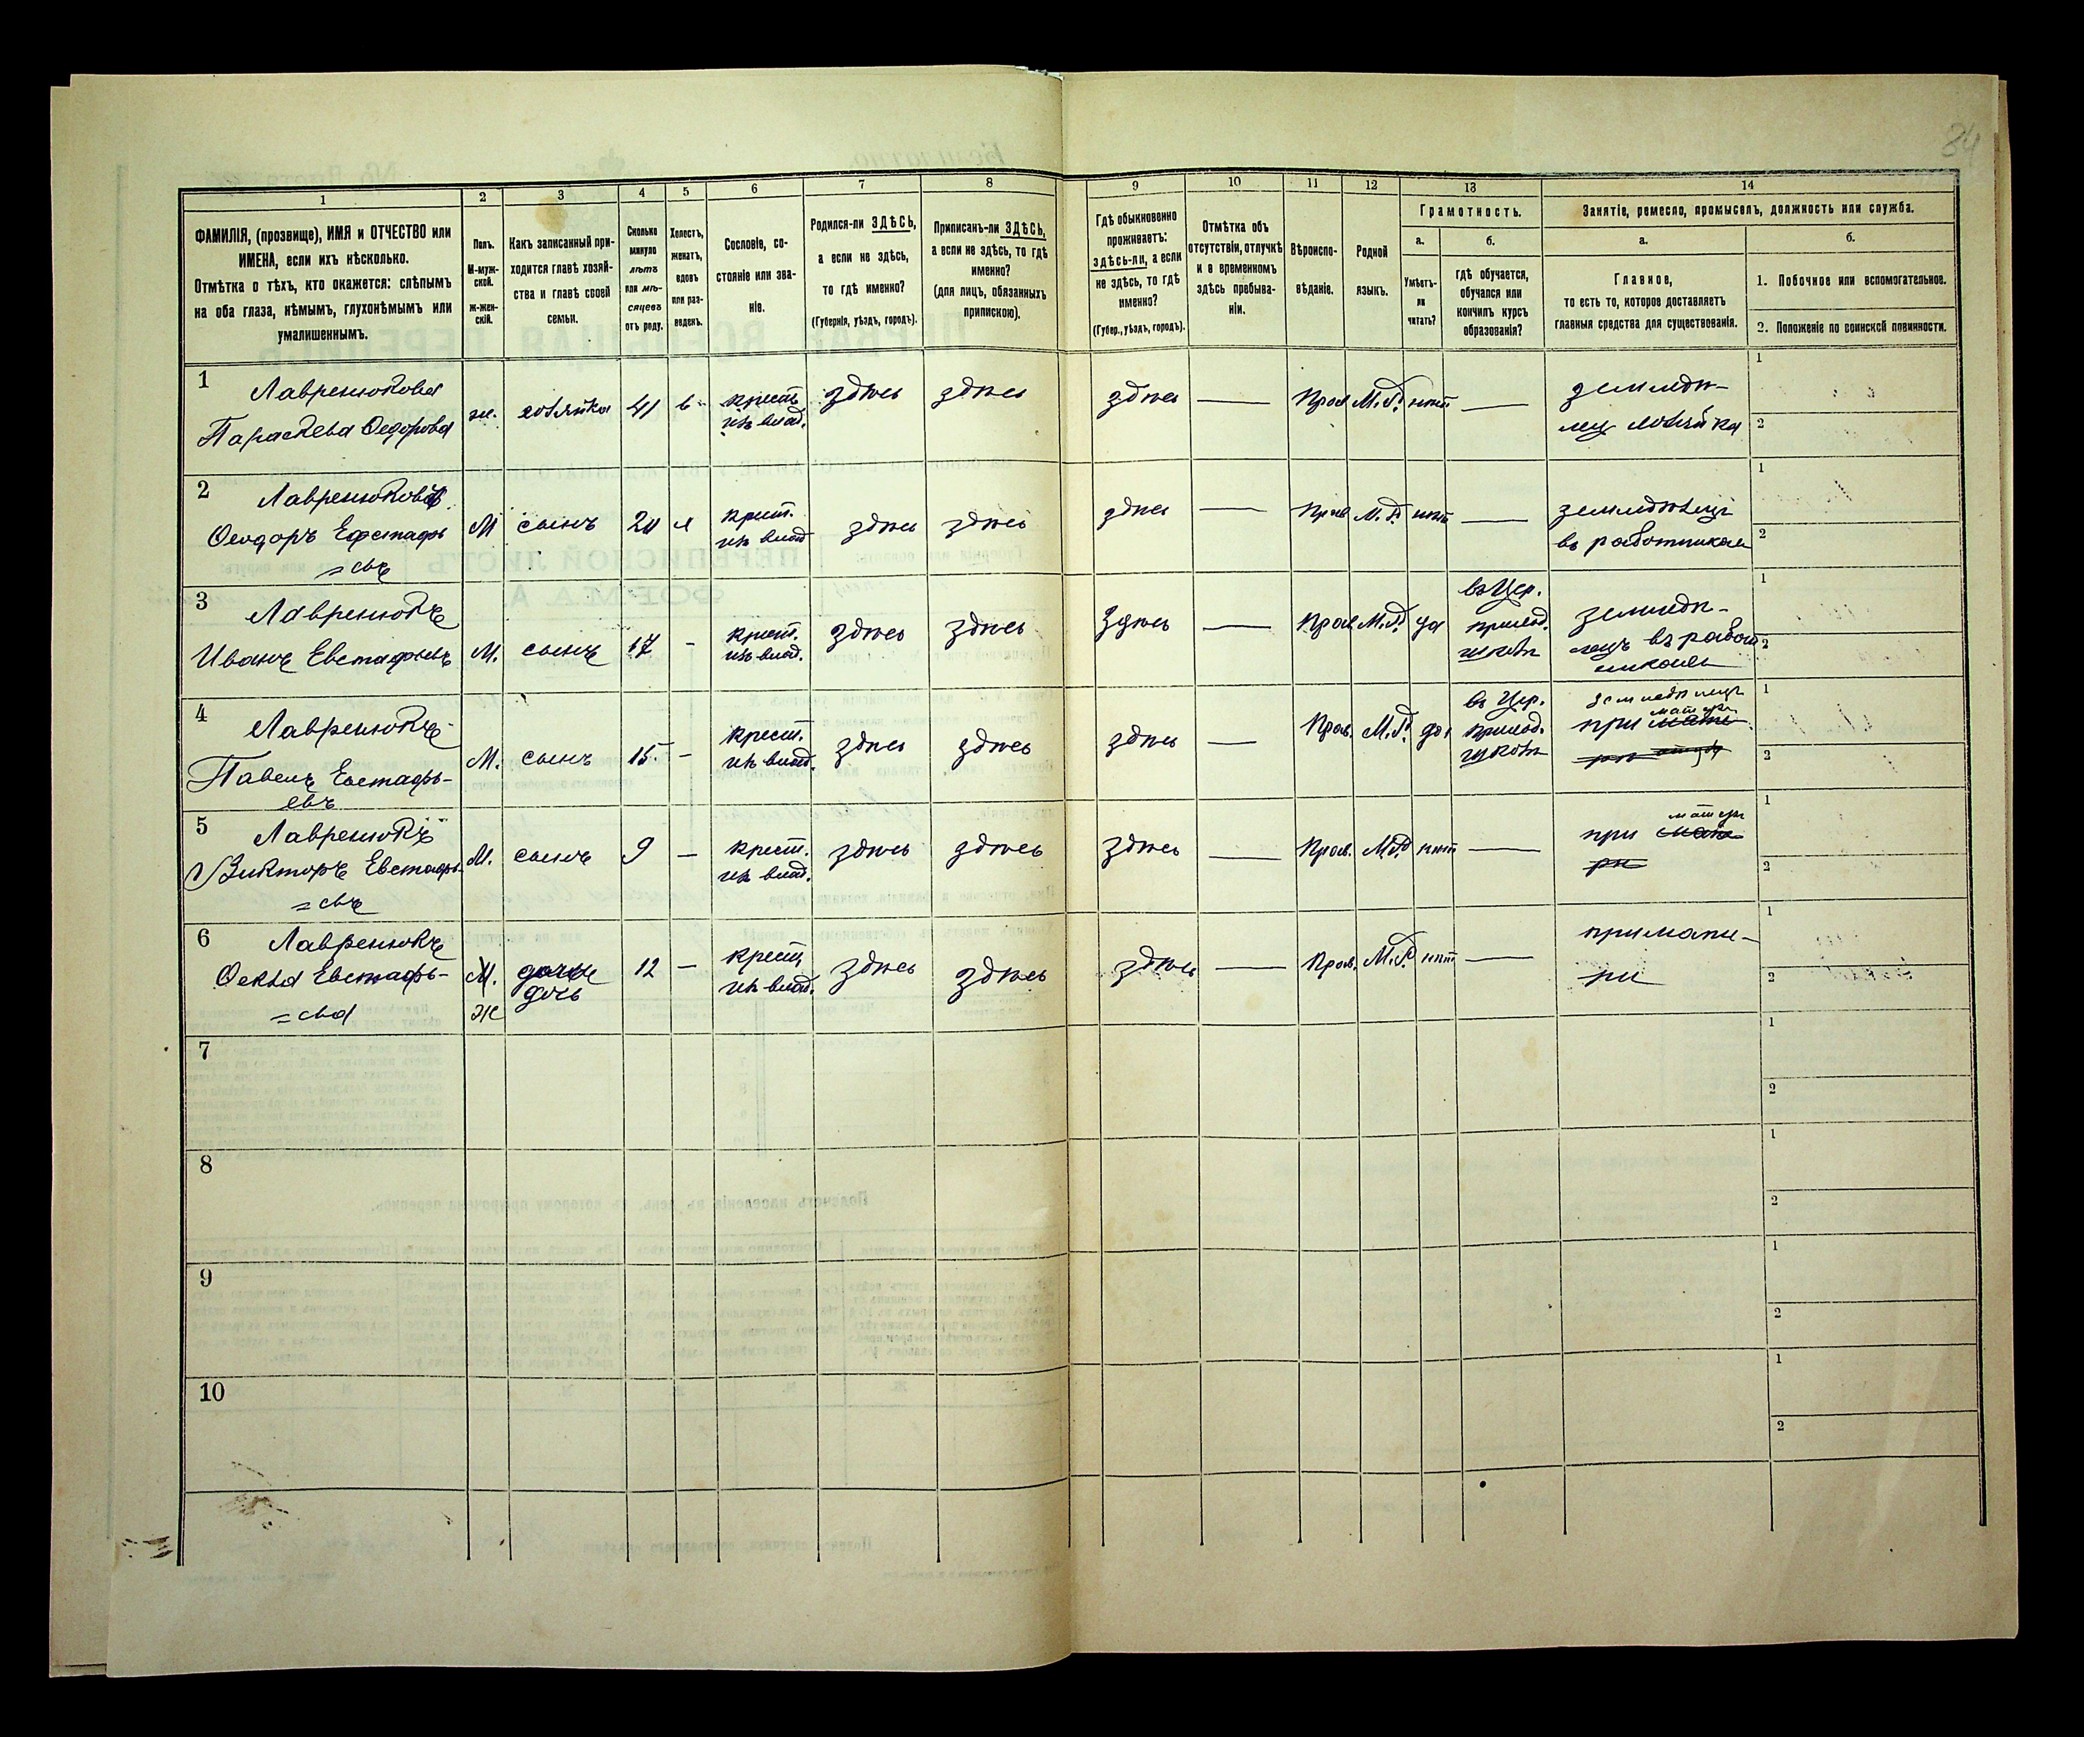 84
1
2
3
4
5
6
7
8
9
10
11
12
13
14
ФАМИЛІЯ, (прозвище), ИМЯ и ОТЧЕСТВО или
ИМЕНА, если ихъ нѣсколько.
Отмѣтка о тѣхъ, кто окажется: слѣпымъ
на оба глаза, нѣмымъ, глухонѣмымъ или
умалишеннымъ.
Полъ.
М-муж-
ской.
Ж-жен-
скій.
Какъ записанный при-
ходится главѣ хозяй-
ства и главѣ своей
семьи.
Сколько
минуло
лѣтъ
или мѣ-
сяцевъ
отъ роду.
Холостъ,
женатъ,
вдовъ
или раз-
веденъ.
Сословіе, со-
стояніе или зва-
ніе.
Родился-ли ЗДѢСЬ,
а если не здѣсь,
то гдѣ именно?
(Губернія, уѣздъ, городъ).
Приписанъ-ли ЗДѢСЬ,
а если не здѣсь, то гдѣ
именно?
(для лицъ, обязанныхъ
припискою).
Гдѣ обыкновенно
проживаетъ:
здѣсь-ли, а если
не здѣсь, то гдѣ
именно?
(Губер., уѣздъ, городъ).
Отмѣтка объ
отсутствіи, отлучкѣ
и о временномъ
здѣсь пребыва-
ніи.
Вѣроиспо-
вѣданіе.
Родной
языкъ.
Грамотность.
а.
Умѣетъ-
ли
читать?
б.
гдѣ обучается,
обучался или
кончилъ курсъ
образованія?
Занятіе, ремесло, промыселъ, должность или служба.
а.
Главное,
то есть то, которое доставляетъ
главныя средства для существованія.
б.
1. Побочное или вспомогательное.
2. Положеніе по воинской повинности.
1
Лавренюкова
Параскева Ѳедорова
ж. хозяйка 41 в
крест.
изъ влад.
здѣсь здѣсь здѣсь — Прав М.Р. нѣтъ —
земледѣ-
1
2
2
Лавренюковъ
Ѳеодоръ Ефстафь
=евъ
М сынъ
крест.
из влад
здѣсь здѣсь здѣсь — Прав М.Р. нѣтъ —
земледѣлецъ
въ работникахъ
1
2
3
Лавренюкъ
Иванъ Евстафьевъ
М. сынъ 17 -
крест.
изъ влад.
здѣсь здѣсь здѣсь — Прав М.Р. да
въ Цер.
приход.
школѣ
земледѣ-
лецъ въ работ
никахъ
1
2
4
Лавренюкъ
Павелъ Евстафь-
евъ
М. сынъ 15 -
крест.
из влад.
здѣсь здѣсь здѣсь — Прав. М.Р. да
въ Цер.
приход.
школѣ
земледѣлецъ
при матери
1
2
5
Лавренюкъ
Викторъ Евстафь
=евъ
М. сынъ 9 —
крест.
из влад.
здѣсь здѣсь здѣсь — Прав. М.Р. нѣтъ —
при матери
1
2
6
Лавренюкъ
Ѳекла Евстафь-
=ева
М.
Ж
дочь
12 —
крест.
из влад.
здѣсь здѣсь здѣсь — Прав. М.Р. нѣтъ —
при мате-
ри
1
2
7
1
2
8
1
2
9
1
2
10
1
2